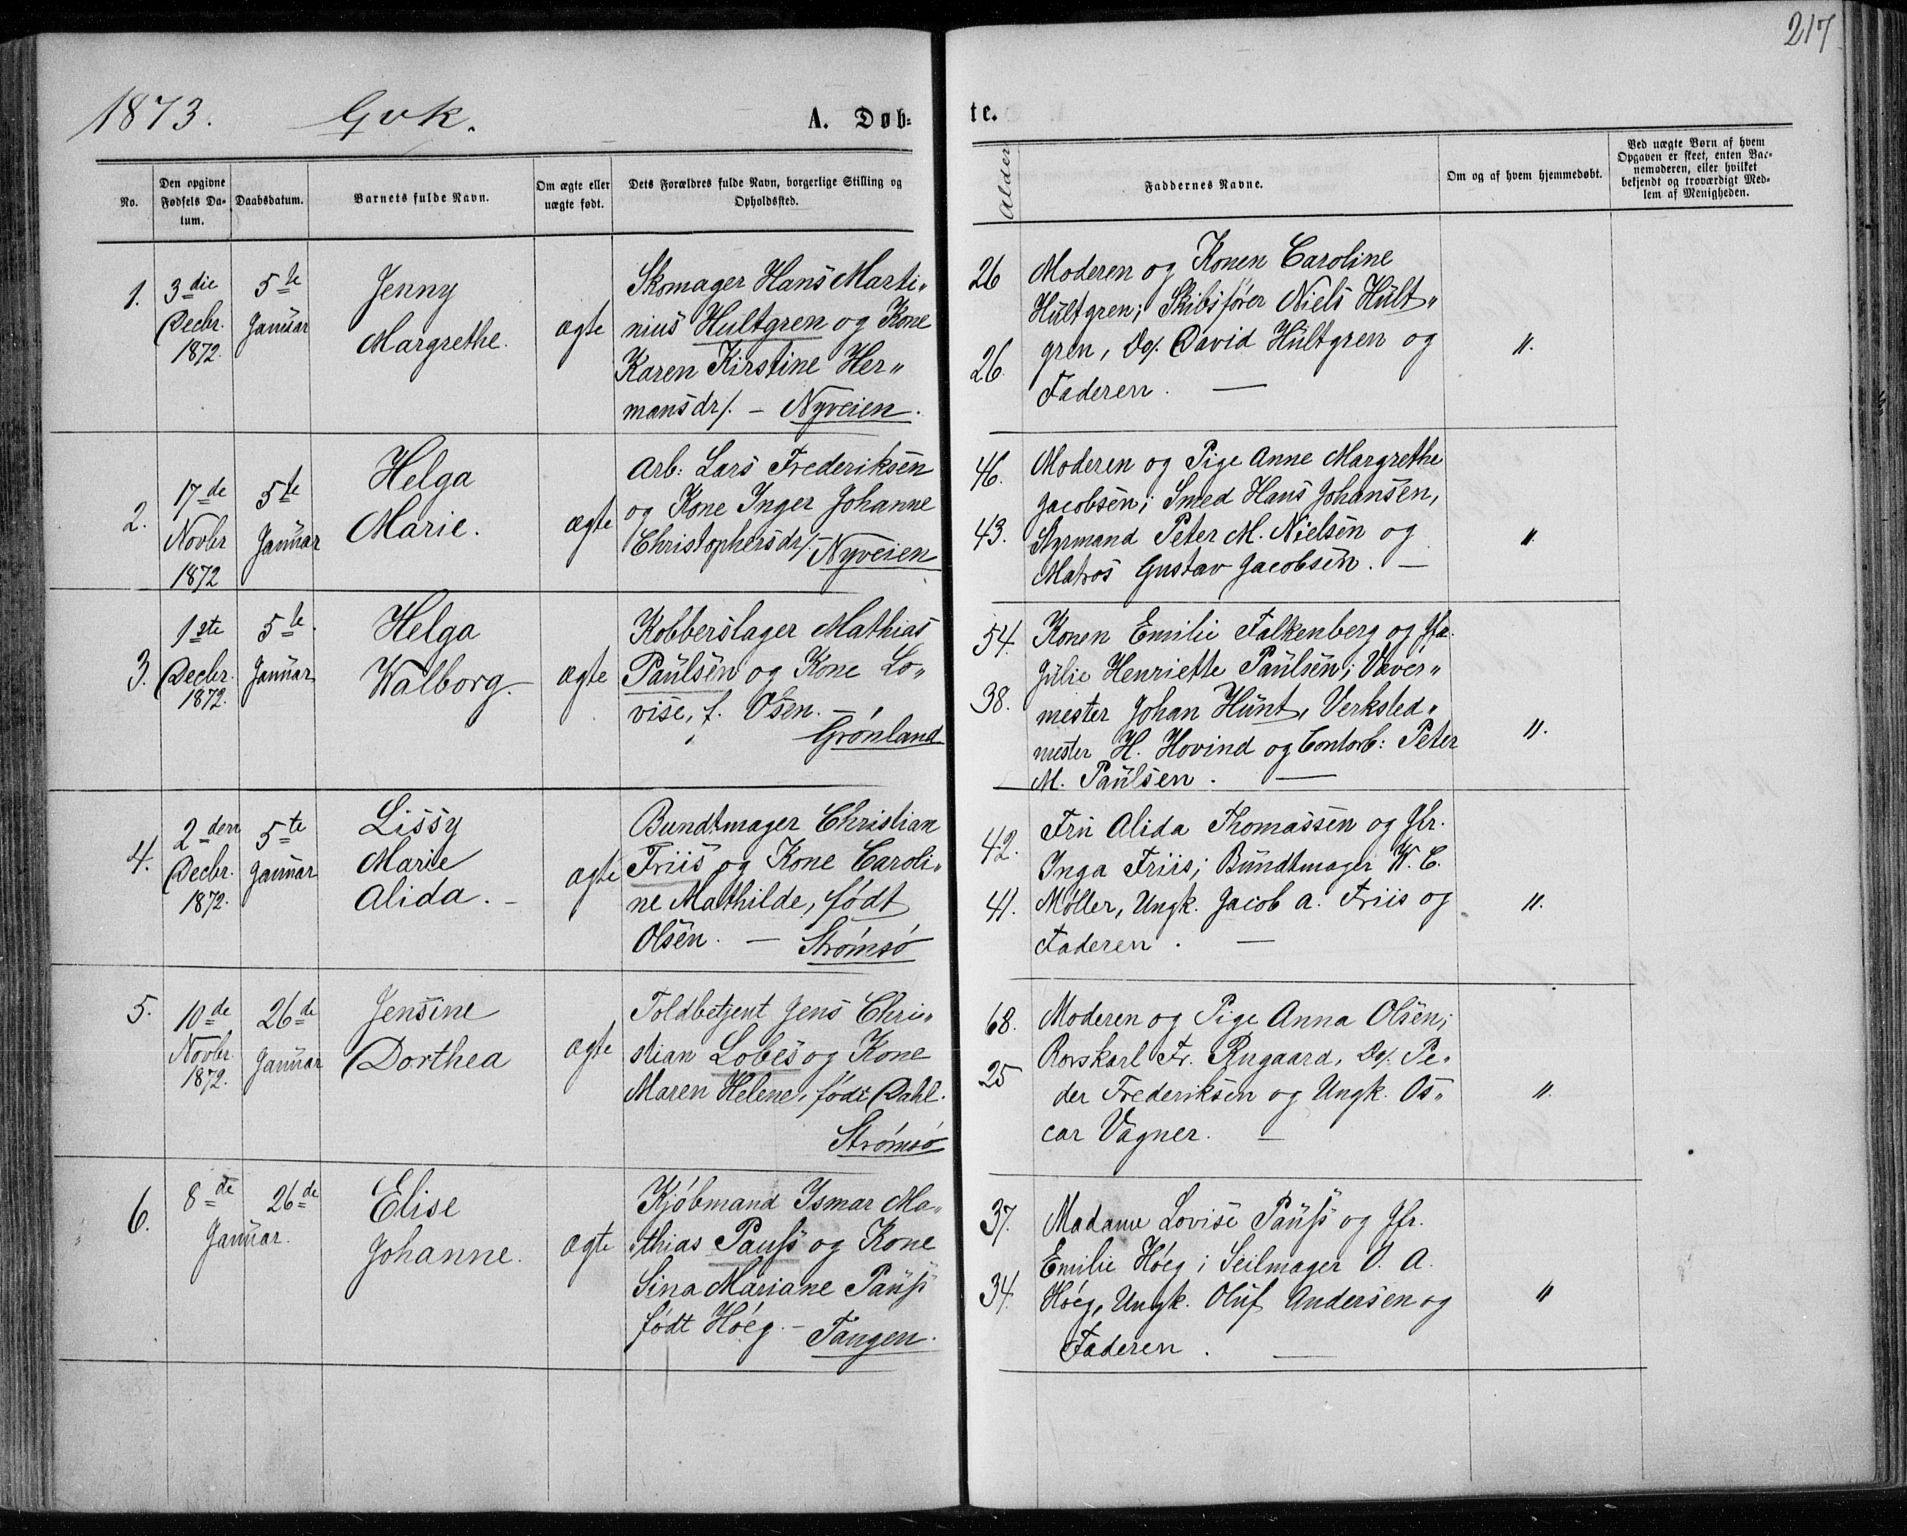 217
1873. Gvk. A. Døb-
te.
No.
Den opgivne
Fødsels Da-
tum.
Daabsdatum.
Barnets fulde Navn.
Om ægte eller
uægte født.
Dets Forældres fulde Navn, borgerlige Stilling og
Opholdsted.
Alder
Faddernes Navne.
Om og af hvem hjemmedøbt.
Ved uægte Børn af hvem
Opgaven er skeet, enten Bar-
nemoderen, eller hvilket
bekjendt og troværdigt Med-
lem af Menigheden.
1.
3die
Decbr.
1872.
5te
Januar
Jenny
Margrethe.
ægte
Skomager Hans Marti„
nius Hultgren og Kone
Karen Kirstine Her„
mansdr/. – Nyveien.
26
26.
Moderen og Konen Caroline
Hultgren; Skibsfører Niels Hult„
gren, Do/. David Hultgren og
Faderen. —
„.
2.
17de
Novbr
1872
5te
Januar
Helga
Marie.
ægte
Arb: Lars Frederiksen
og Kone Inger Johanne
Christophersdr/. Nyveien
46.
43.
Moderen og Pige Anne Margrethe
Jacobsen; Smed Hans Johansen,
Styrmand Peter M. Nielsen og
Matros Gustav Jacobsen. —
„.
3.
1ste
Decbr.
1872.
5te
Januar
Helga
Walborg.
ægte
Kobberslager Mathias
Paulsen og Kone Lo„
vise, f. Olsen. –
Grønland
54.
38.
Konen Emilie Falkenberg og Jfr.
Julie Henriette Paulsen; Væver„
mester Johan Hunt, Verksted„
mester H. Hovind og Contorb: Peter
M. Paulsen. —
„.
4.
2den
Decbr.
1872.
5te
Januar
Lissy
Marie
Alida. –
ægte
Bundtmager Christian
Friis og Kone Caroli„
ne Mathilde, født
Olsen. — Strømsø
42.
41.
Fru Alida Thomassen og Jfr.
Inga Friis; Bundtmager W. C.
Møller, Ungk. Jacob A. Friis og
Faderen. —
„.
5.
10de
Novbr
1872.
26de
Januar
Jensine
Dorthea
ægte
Toldbetjent Jens Chri„
stian Lobes og Kone
Maren Helene, født Dahl.
Strømsø
68.
25
Moderen og Pige Anna Olsen;
Rorskarl Fr. Rugaard, Do/. Pe„
der Frederiksen og Ungk. Os„
car Vagner. —
„.
6.
8de
Januar.
26de
Elise
Johanne.
ægte
Kjøbmand Ismar Ma„
thias Pauss og Kone
Sina Mariane Pauss
født Høeg. – Tangen.
37.
34.
Madame Lovise Pauss og Jfr.
Emilie Høeg; Seilmager O. A.
Høeg, Ungk. Oluf Andersen og
Faderen. —
„